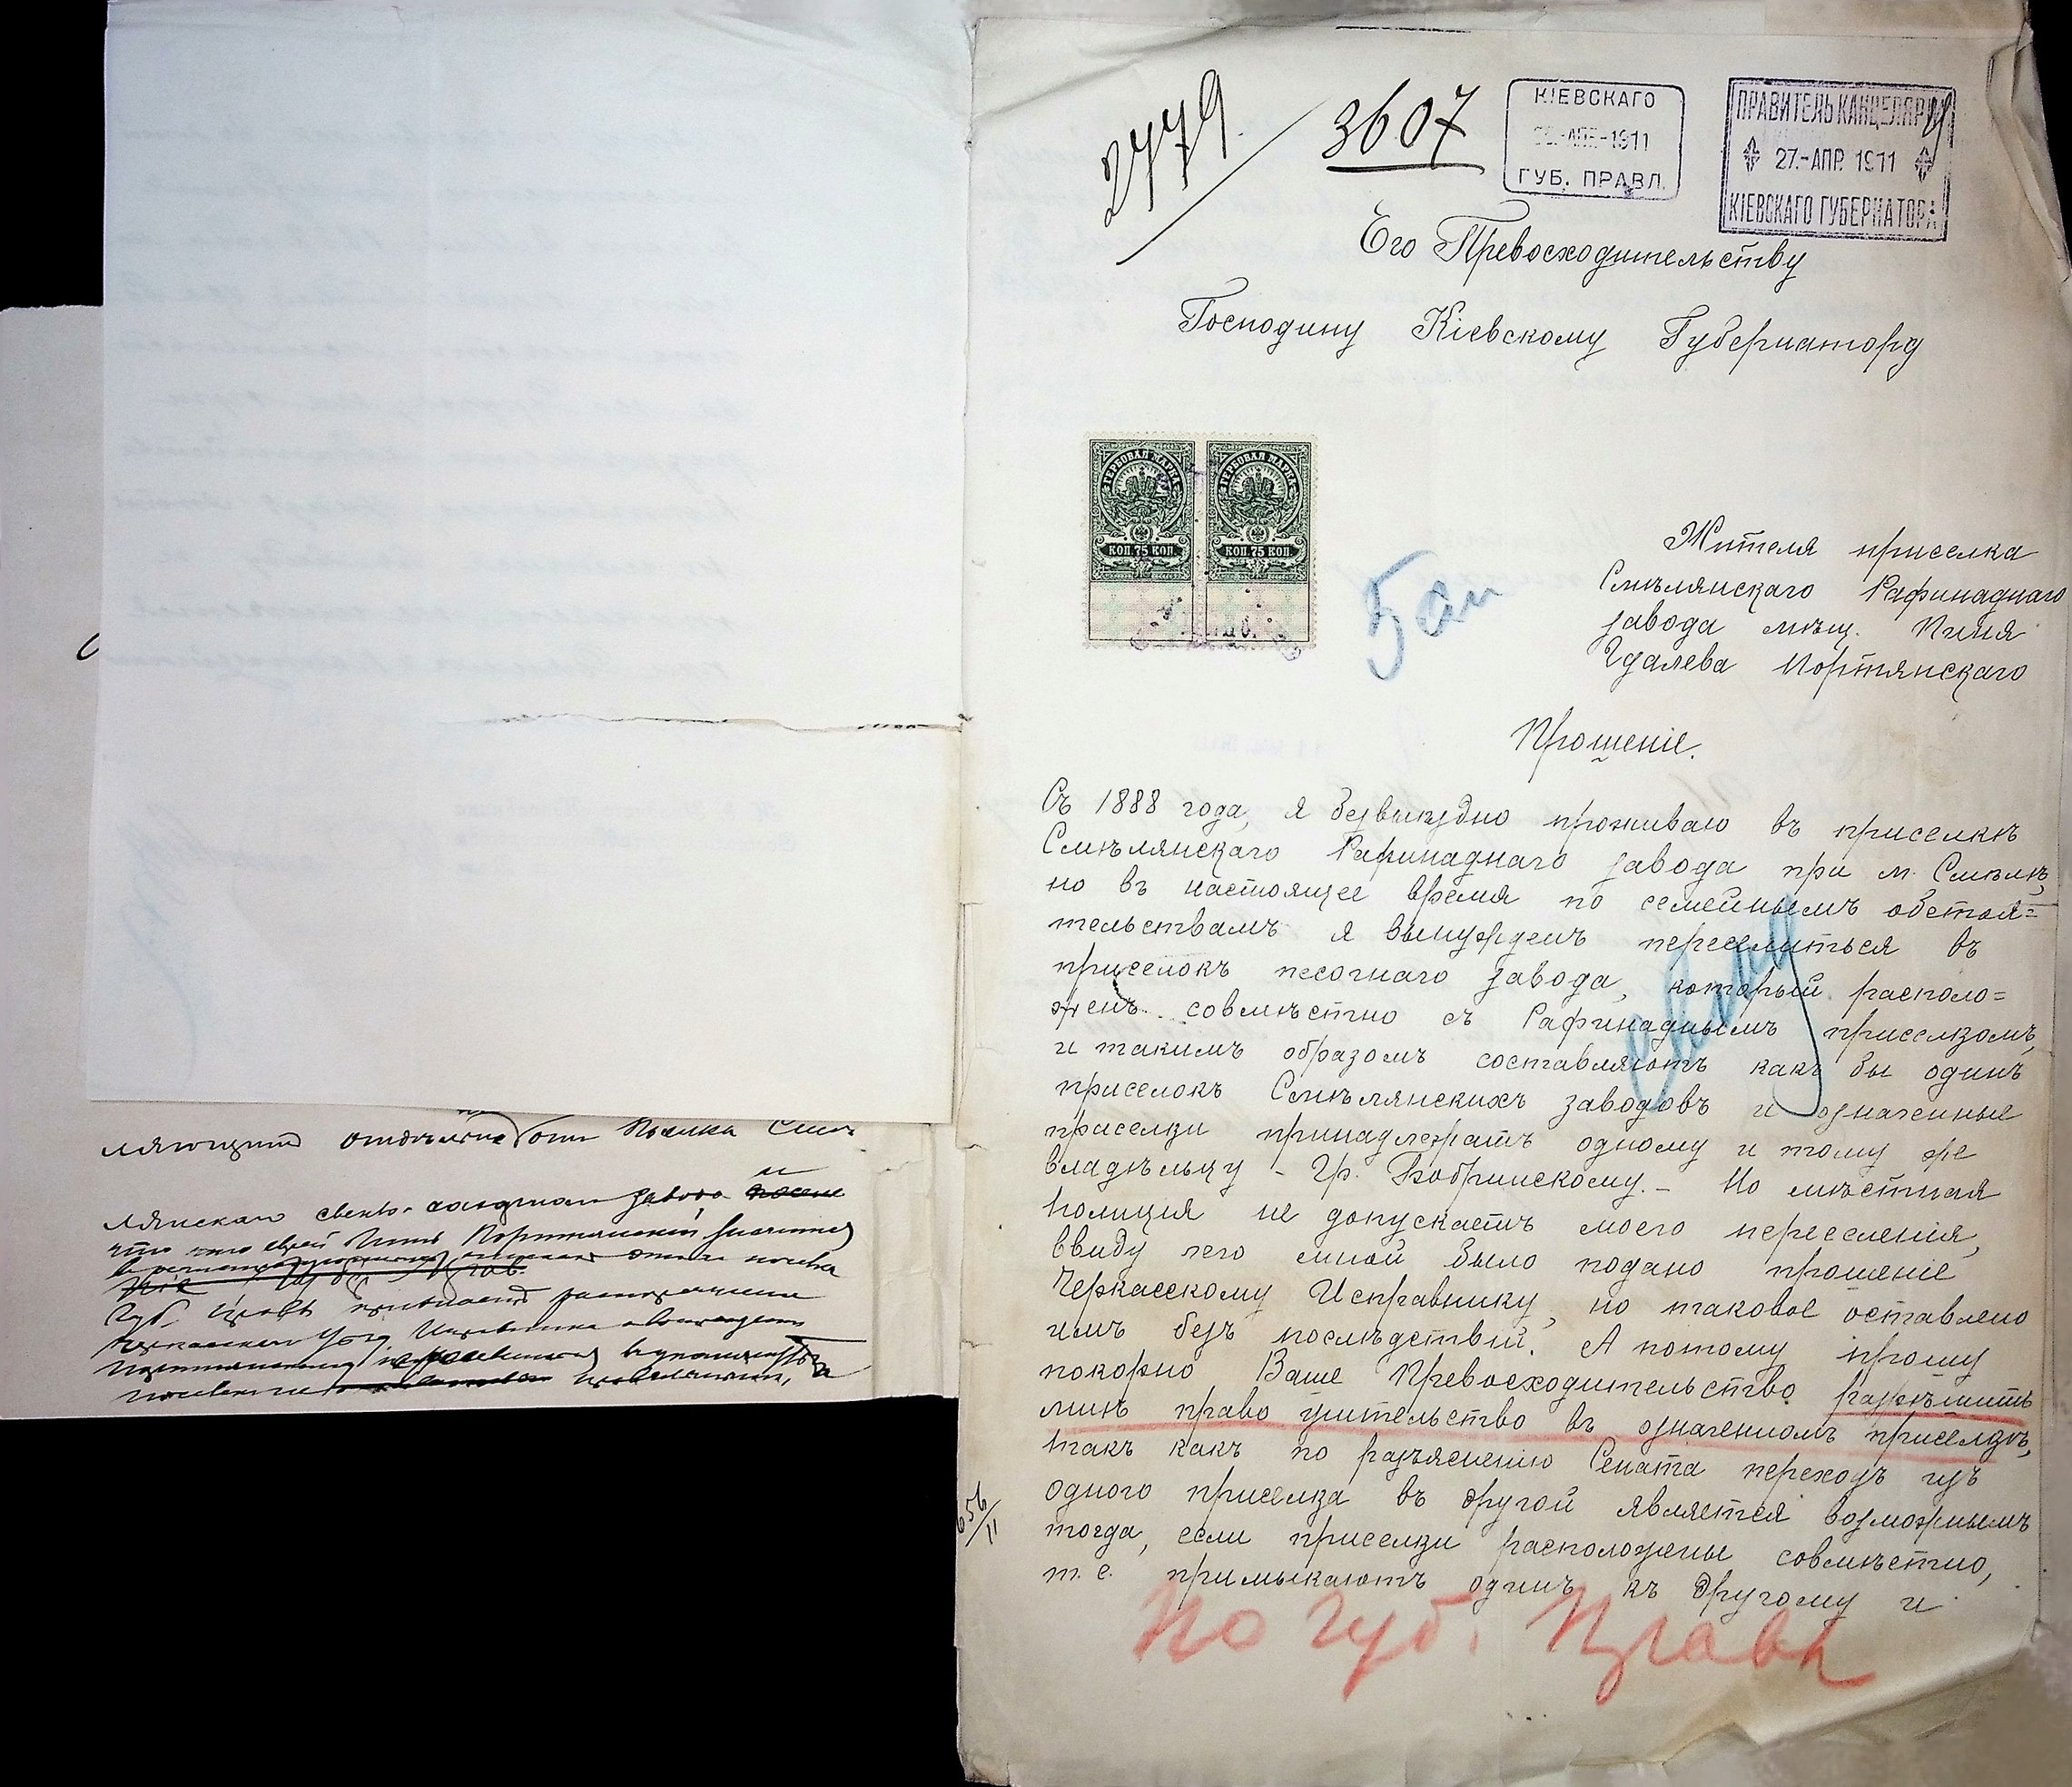 2779.
3607
КІЕВСКАГО
АПР 1911
ГУБ. ПРАВЛ.
ПРАВИТЕЛЬ КАНЦЕЛЯРІИ
27.-АПР. 1911
КІЕВСКАГО ГУБЕРНАТОРА
Его Превосходительству
Господину Кіевскому Губернатору
ГЕРБОВАЯ МАРКА
КОП. 75 КОП.
ГЕРБОВАЯ МАРКА
КОП. 75 КОП.
Жителя приселка
Смѣлянскаго Рафинаднаго
завода мѣщ. Пиня
Гдалева Портянскаго
Прошеніе.
Съ 1888 года, я безвыѣздно проживаю въ приселкѣ
Смѣлянскаго Рафинаднаго завода при м. Смѣлѣ,
но въ настоящее время по семейнымъ обстоя=
тельствамъ я вынужденъ переселиться въ
приселокъ песочнаго завода, который располо=
женъ совмѣстно съ Рафинаднымъ приселкомъ,
и такимъ образомъ составляютъ какъ бы одинъ
приселокъ Смѣлянскихъ заводовъ и означенные
приселки принадлежатъ одному и тому же
владѣльцу - Гр. Бобринскому. - Но мѣстная
полиція не допускаетъ моего переселенія,
ввиду чего мной было подано прошеніе
Черкасскому Исправнику, но таковое оставлено
имъ безъ послѣдствій. А потому прошу
покорно Ваше Превосходительство разрѣшить
мнѣ право жительство въ означенномъ приселкѣ,
такъ какъ по разъясненію Сената переходъ изъ
одного приселка въ другой является возможнымъ
тогда, если приселки расположены совмѣстно,
т. е. примыкаютъ одинъ къ другому и
656/11
По Губ. Правл
ляющій отдѣльное от поселка Смѣ-
лянскаго свекло-сахарнаго завода и
что еврей Пинь Портянскій значится
этого поселка
Губ. Правл. распоряженіе
Черкасскаго Уѣзд. Исправника